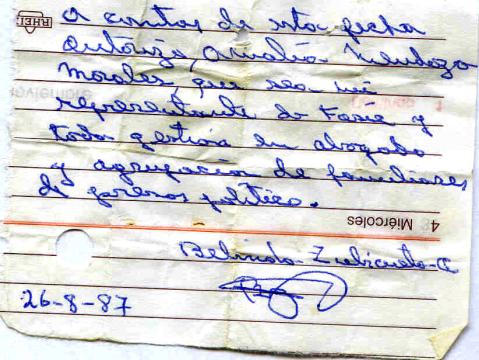 A contar de esta fecha
autorizo, Amalia Mendoza
Morales, que sea mi
representante de Fasic y
todo gestión en abogado
y agrupación de familiares
de presos politico.
4 Miércoles
Belinda Zubicueta C
26-8-87
RHEI